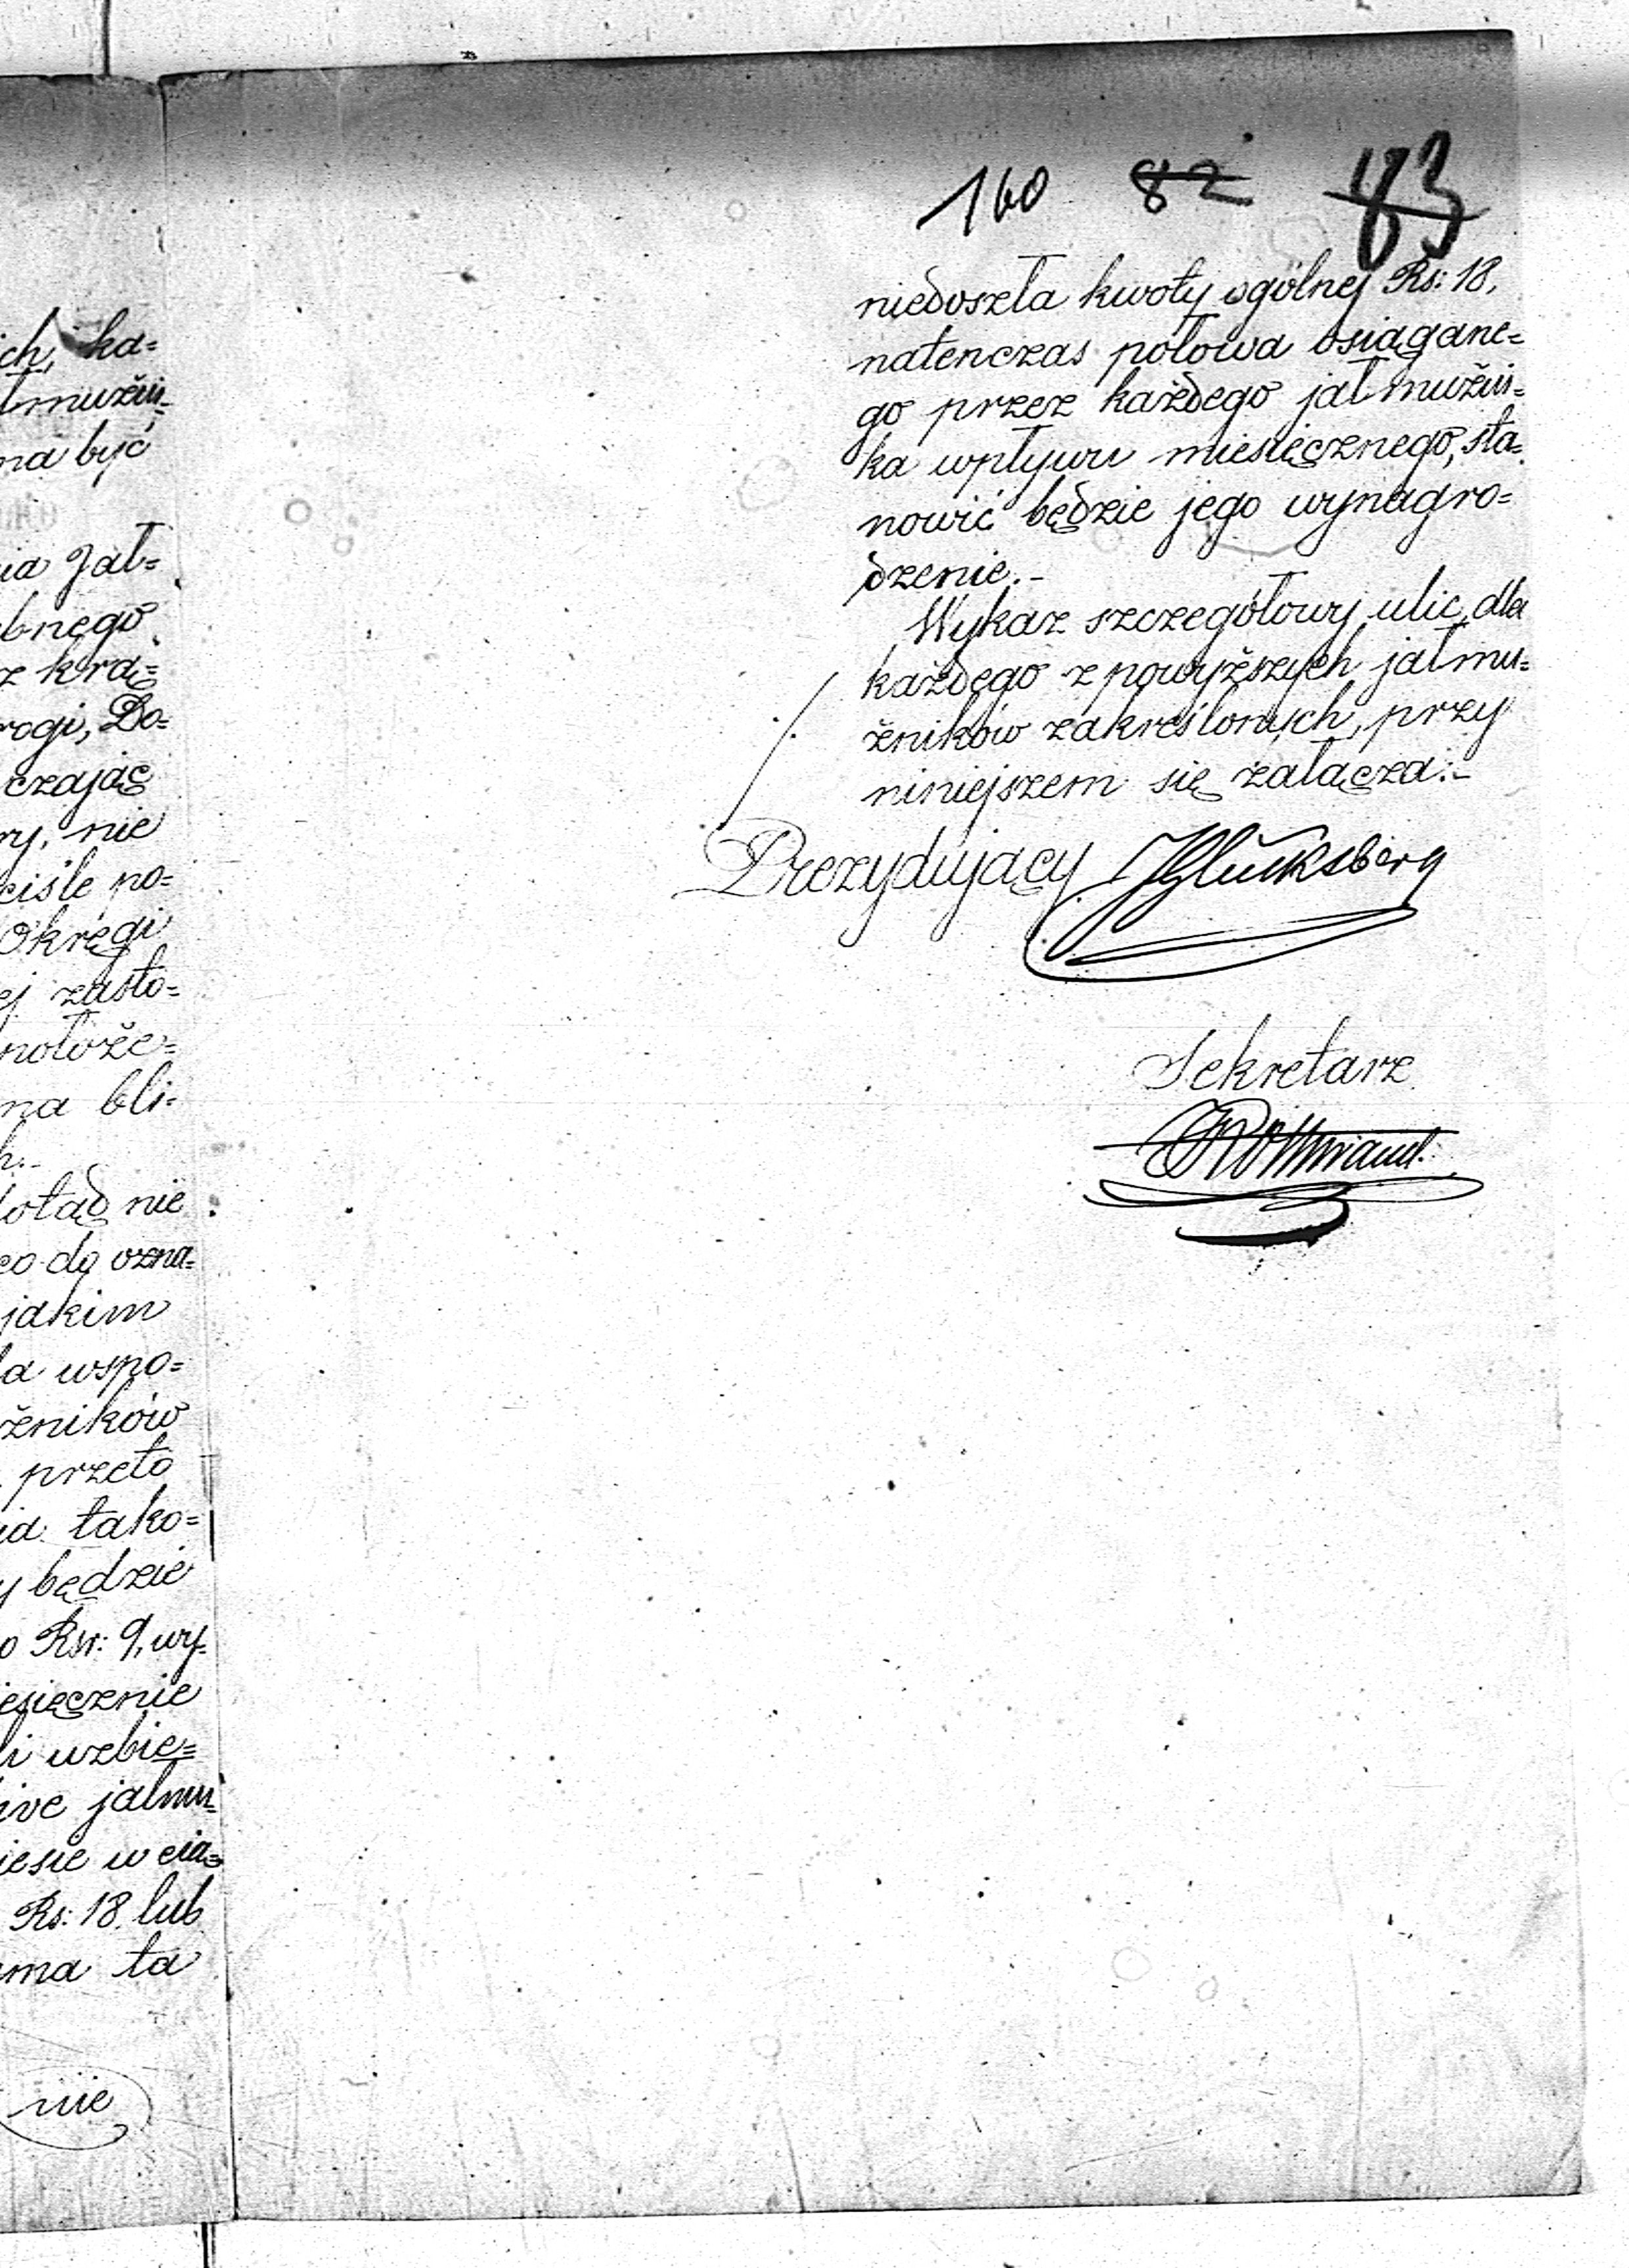 ich, ka=
łmużni=
ma być
nia Jał=
bnego
z krą=
rogi, Do=
czając
ry, nie
ciśle po=
Okręgi
ej zasto=
położe=
na bli=
h.-
dotąd nie
co do ozna=
jakim
la wspo=
żników
przeto
ia tako=
y będzie
o Rsr: 9, wy=
iesięcznie
li uzbie=
jałmu=
iesie w cią=
Rs: 18. lub
ma ta
nie
160 82 83
niedoszła kwoty ogólnej Rs: 18,
natenczas połowa osiągane=
go przez każdego jałmużni=
ka wpływu miesięcznego, sta=
nowić będzie jego wynagro=
dzenie.-
Wykaz szczegółowy ulic, dla
każdego z powyższych jałmu=
żników zakreślonych, przy
niniejszem się załącza.-
Prezydujący JGlucksberg
Sekretarz